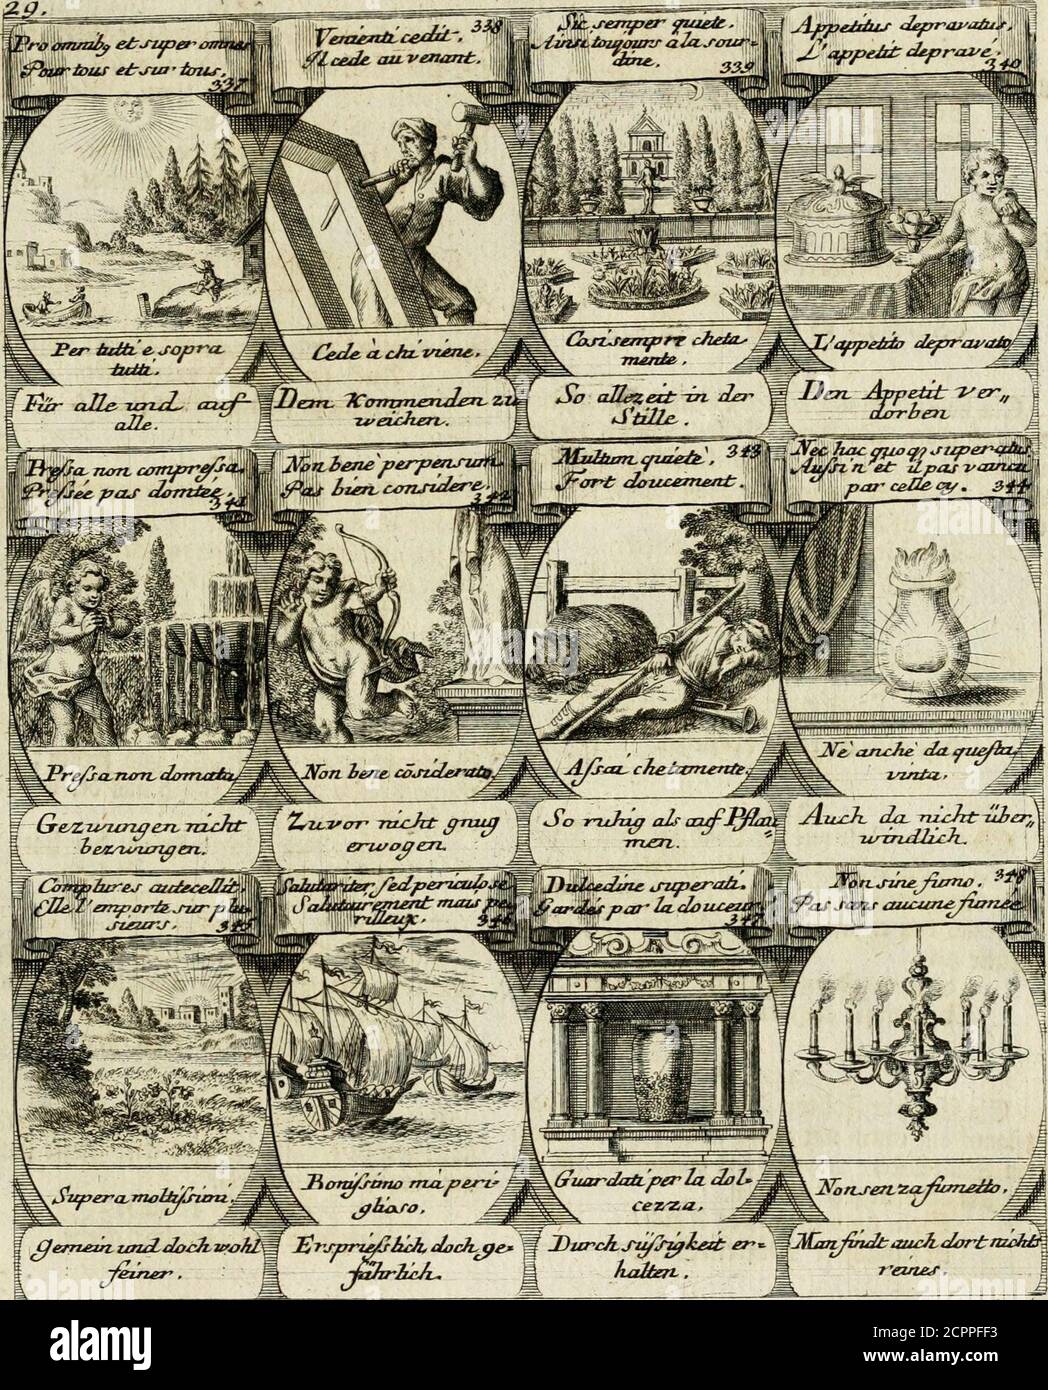 29.
Pro omnibꝫ et super omnes
Pour tous et sur tous.
337
Per tutti e sopra
tutti.
Für alle und auf
alle.
Venienti cedit. 338
Il cede au venant.
Cede à chi viene.
Dem Kommenden zu
weichen.
Sic semper quiete.
Ainsi toujours à la sour=
dine. 339
Cosi sempre cheta
mente.
So allezeit in der
Stille.
Appetitus depravatus.
L'appetit depravé.
340
L'appetito depravato
Den Appetit ver„
dorben
Pressa non compressa.
Pressée pas domtée.
341
Pressa non domata
Gezwungen nicht
bezwungen.
Non bene perpensum.
Pas bien considere.
342
Non bene cōsiderato.
Zuvor nicht gnug
erwogen.
Multum quietè. 343
Fort doucement.
Assai chetamente.
So ruhig als auf Pflau=
men.
Nec hac quoqꝫ superatus
Aussi n'et il pas vaincu
par celle cy. 344
Nè anche da questa
vinta.
Auch da nicht über„
windlich.
Complures antecellit.
Elle l'emporte sur plu
sieurs. 345
Supera moltissimi.
Gemein und doch wohl
feiner.
Salutariter, sed periculose
Salutairement mais pe
rilleux. 346
Bonissimo mà peri=
glioso.
Ersprießlich doch ge=
fährlich.
Dulcedine superati.
Gardés par la douceur.
347
Guardati per la dol=
cezza.
Durch süssigkeit er=
halten.
Non sine fumo. 348
Pas sans aucune fumée
Non senza fumetto.
Man findt auch dort nichts
reines.
alamy
alamy
Image ID: 2CPPFF3
www.alamy.com